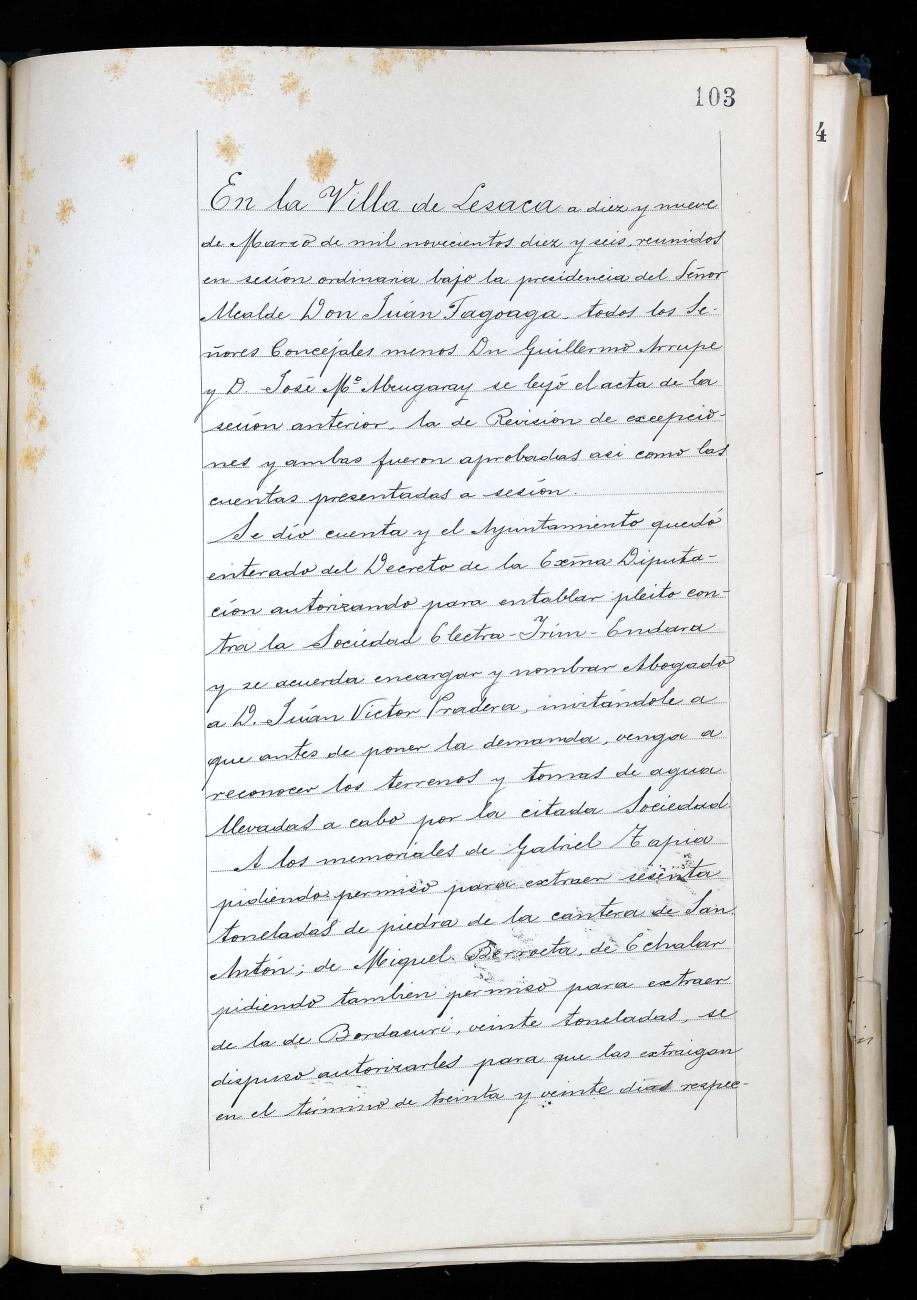 103
4
En la Villa de Lesaca a diez y nueve
de Marzo de mil novecientos diez y seis, reunidos
en sesión ordinaria bajo la presidencia del Señor
Alcalde Don Juán Tagoaga, todos los Se-
ñores Concejales menos Dn Guillermo Arrupe
y D. José Mº Abrugaray se leyó el acta de la
sesión anterior, la de Revisión de excepcio-
nes y ambas fueron aprobadas asi como las
cuentas presentadas a sesión.
Se dío cuenta y el Ayuntamiento quedó
enterado del Decreto de la Exma Diputa-
ción autorizando para entablar pleito con-
tra la Sociedad Electra-Irim-Endara
y se acuerda encargar y nombrar Abogado
a D. Juán Victor Pradera, invitándole a
que antes de poner la demanda, venga a
reconocer los terrenos y tomas de agua
llevadas a cabo por la citada Sociedad.
A los memoriales de Gabriel Tapia
pidiendo permiso para extraer sesenta
toneladas de piedra de la cantera de San
Antón; de Miguel Berroeta, de Echalar
pidiendo tambien permiso para extraer
de la de Bordacuri, veinte toneladas, se
dispuso autorizarles para que las extraigan
en el término de treinta y veinte dias respec-